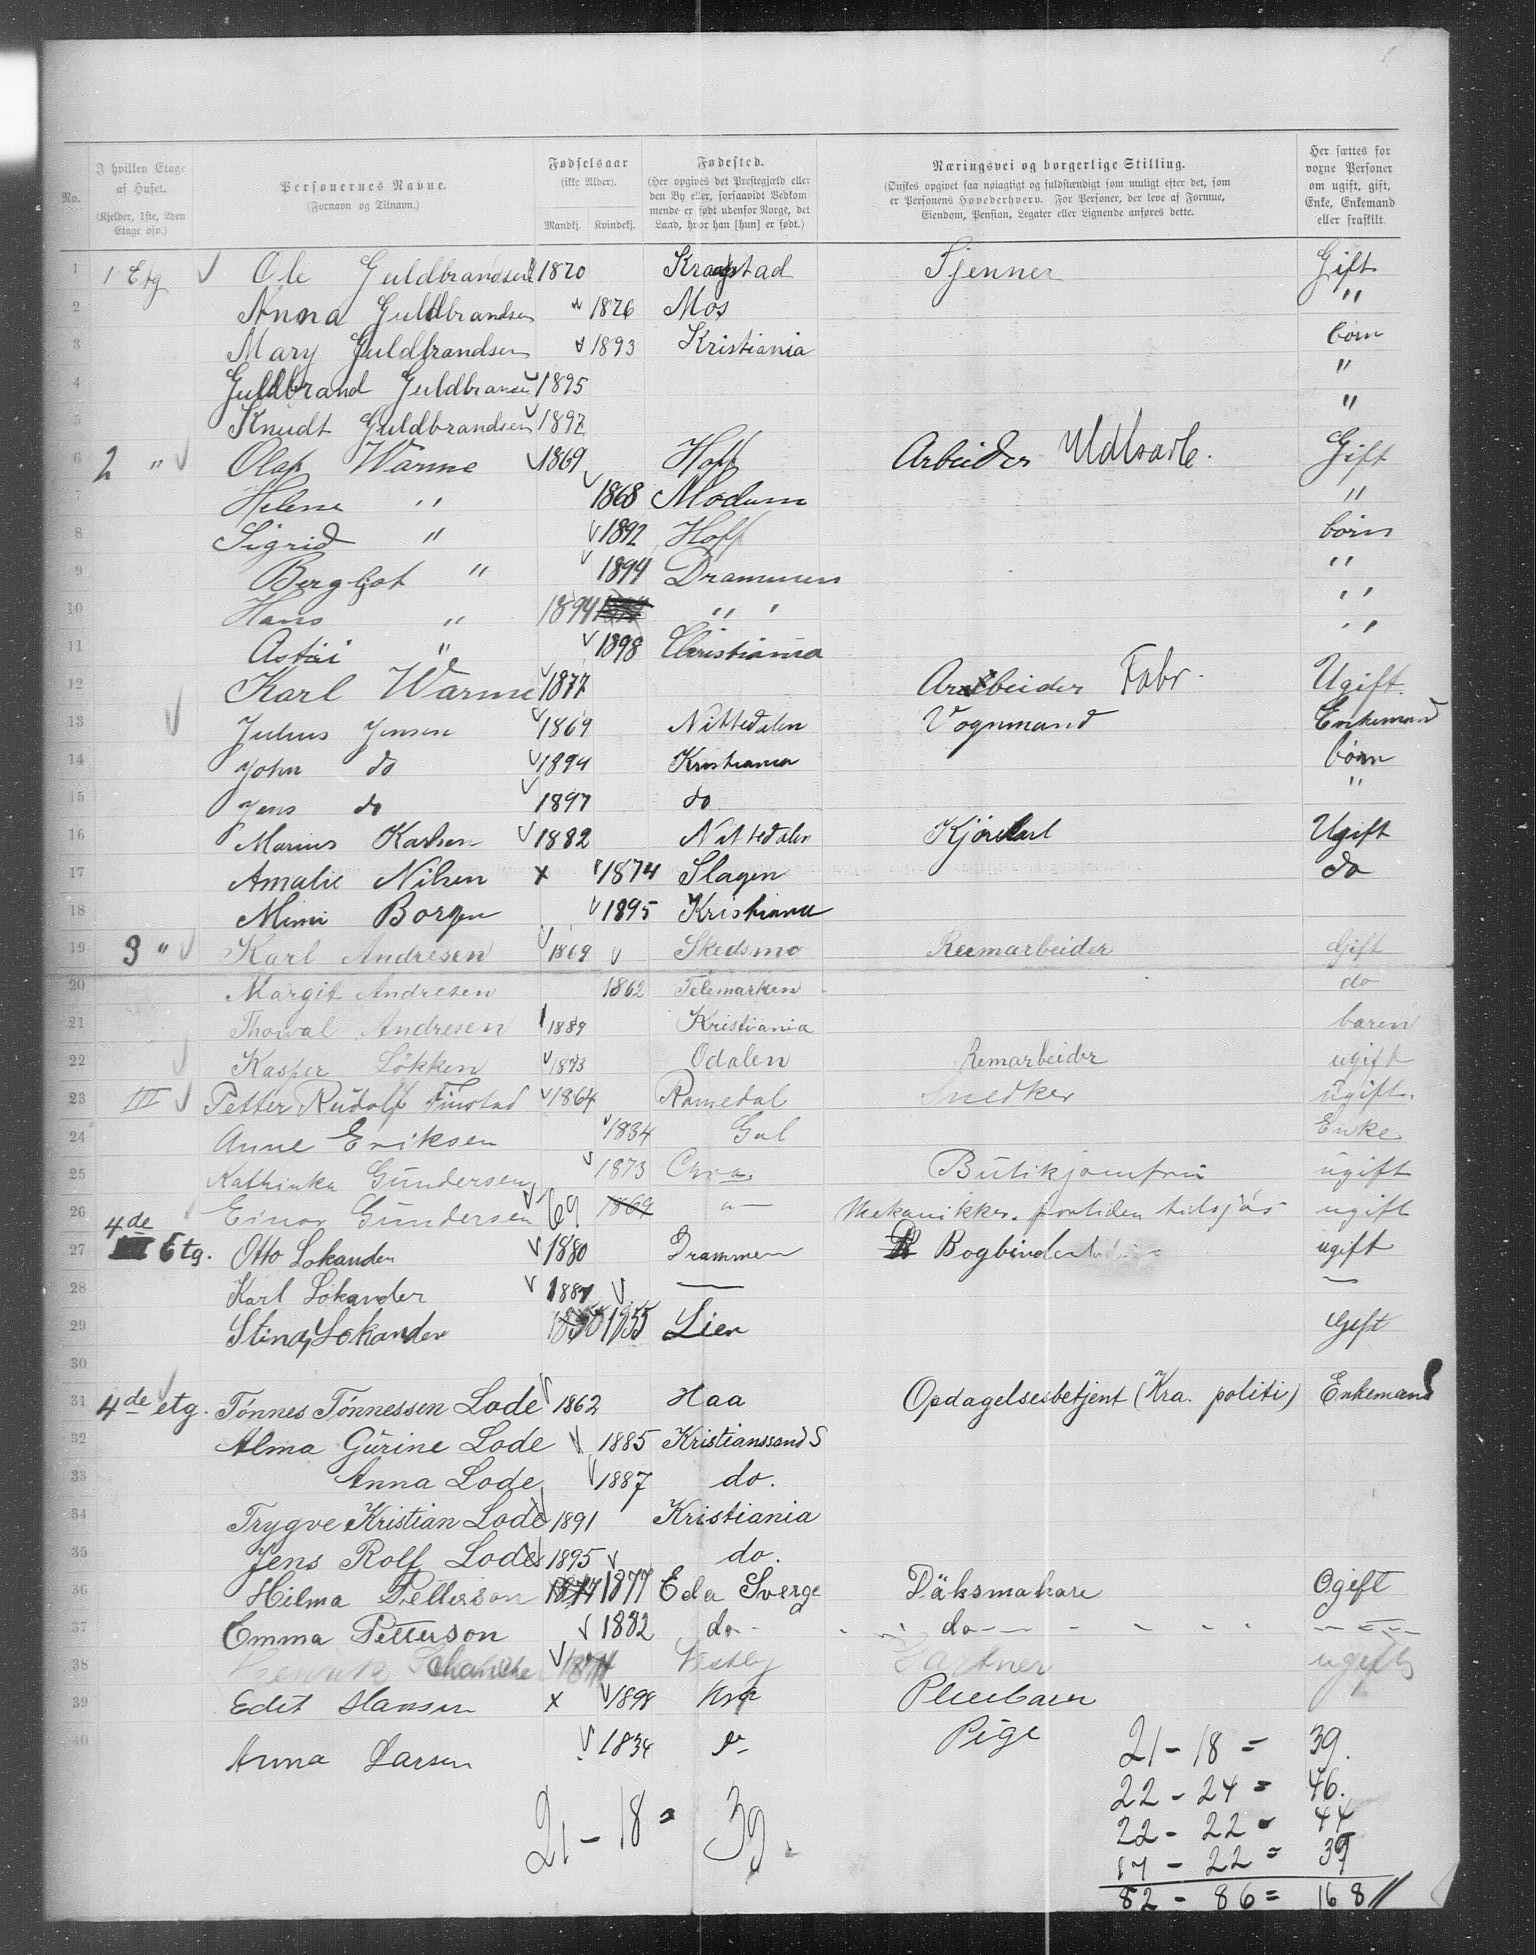 No.
I hvilken Etage af Huset. (Kjelder, 1ste, 2den Etage osv.)
Personernes Navne. (Fornavn og Tilnavn.)
Fødselsaar (ikke Alder). Mandkj. Kvindekj.
Fødested. (Her opgives det Prestegjæld eller den By eller, forsaavidt Vedkommende er født udenfor Norge, det Land, hvor han [hun] er født.)
Næringsvei og borgerlige Stilling. (Ønskes opgivet saa nøiagtigt og fuldstændigt som muligt efter det, som er Personens Hovederhverv. For Personer, der leve af Formue, Eiendom, Pension, Legater eller Lignende anføres dette.)
Her sættes for voxne Personer om ugift, gift, Enke, Enkemand eller fraskilt.
1 1 Etg Ole Guldbrandsen 1870 Kraagstad Tjenner Gift
2 Anna Guldbrandsen 1876 Mos "
3 Mary Guldbrandsen 1893 Kristiania børn
4 Guldbrand Guldbransen 1895 "
5 Knudt Guldbrandsen 1897 "
6 2 " Olaf Warme 1869 Hoff Arbeider Gift
7 Helene " 1868 Modum "
8 Sigrid " 1892 Hoff børn
9 Bergljot " 1894 Drammen "
10 Hans " 1894 " "
11 " 1898 Christiania "
12 Karl Warme 1877 Arbeider Fabr. Ugift.
13 Julius Jensen 1869 Nittedalen Vognmand Enkemand
14 John do 1894 Kristiania børn
15 Jens do 1897 do "
16 Marius Karlsen 1882 Nittedalen Kjørekarl Ugift
17 Amalie Nilsen x 1874 Slagen do
18 Mimi Borgen 1895 Kristiania
19 3 " Karl Andresen 1869 Skedsmo Reemarbeider Gift
20 Margit Andresen 1862 Telemarken do
21 Thorval Andresen 1889 Kristiania baren
22 Kasper Løkken 1873 Odalen Remarbeider ugift
23 III Petter Rudolf Finstad 1864 Romedal Snedker ugift.
24 Anne Eriksen 1834 Gol Enke
25 Kathinka Gundersen 1873 Chra. Butikjomfru ugift
26 Einar Gundersen 69 1869 " Mekanikker. fortiden tilsjøs ugift
27 4de Etg. Otto Lokander 1880 Drammen Bogbinder ugift
28 Karl Lokander 1887 — —
29 Stina Lokander 1855 Lier Gift
30
31 4de etg. Tönnes Tönnessen Lode 1862 Haa Opdagelsesbetjent (Kra. politi) Enkemand
32 Alma Gürine Lode 1885 Kristianssand S
33 Anna Lode 1887 do.
34 Trygve Kristian Lode 1891 Kristiania
35 Jens Rolf Lode 1895 do.
36 Hilma Petterson 1877 Eda Sverge Däksmakare Ogift
37 Emma Petterson 1882 do - do - -
38 Henrik 1874 Vestby Gartner ugift
39 Edit Hansen x 1898 Kra Pleiebarn
40 Anna Larsen 1834 Pige
21 - 18 = 39.
22 - 24 = 46.
22 - 22 = 44
17 - 22 = 39
82 - 86 = 168
21 - 18 = 39.